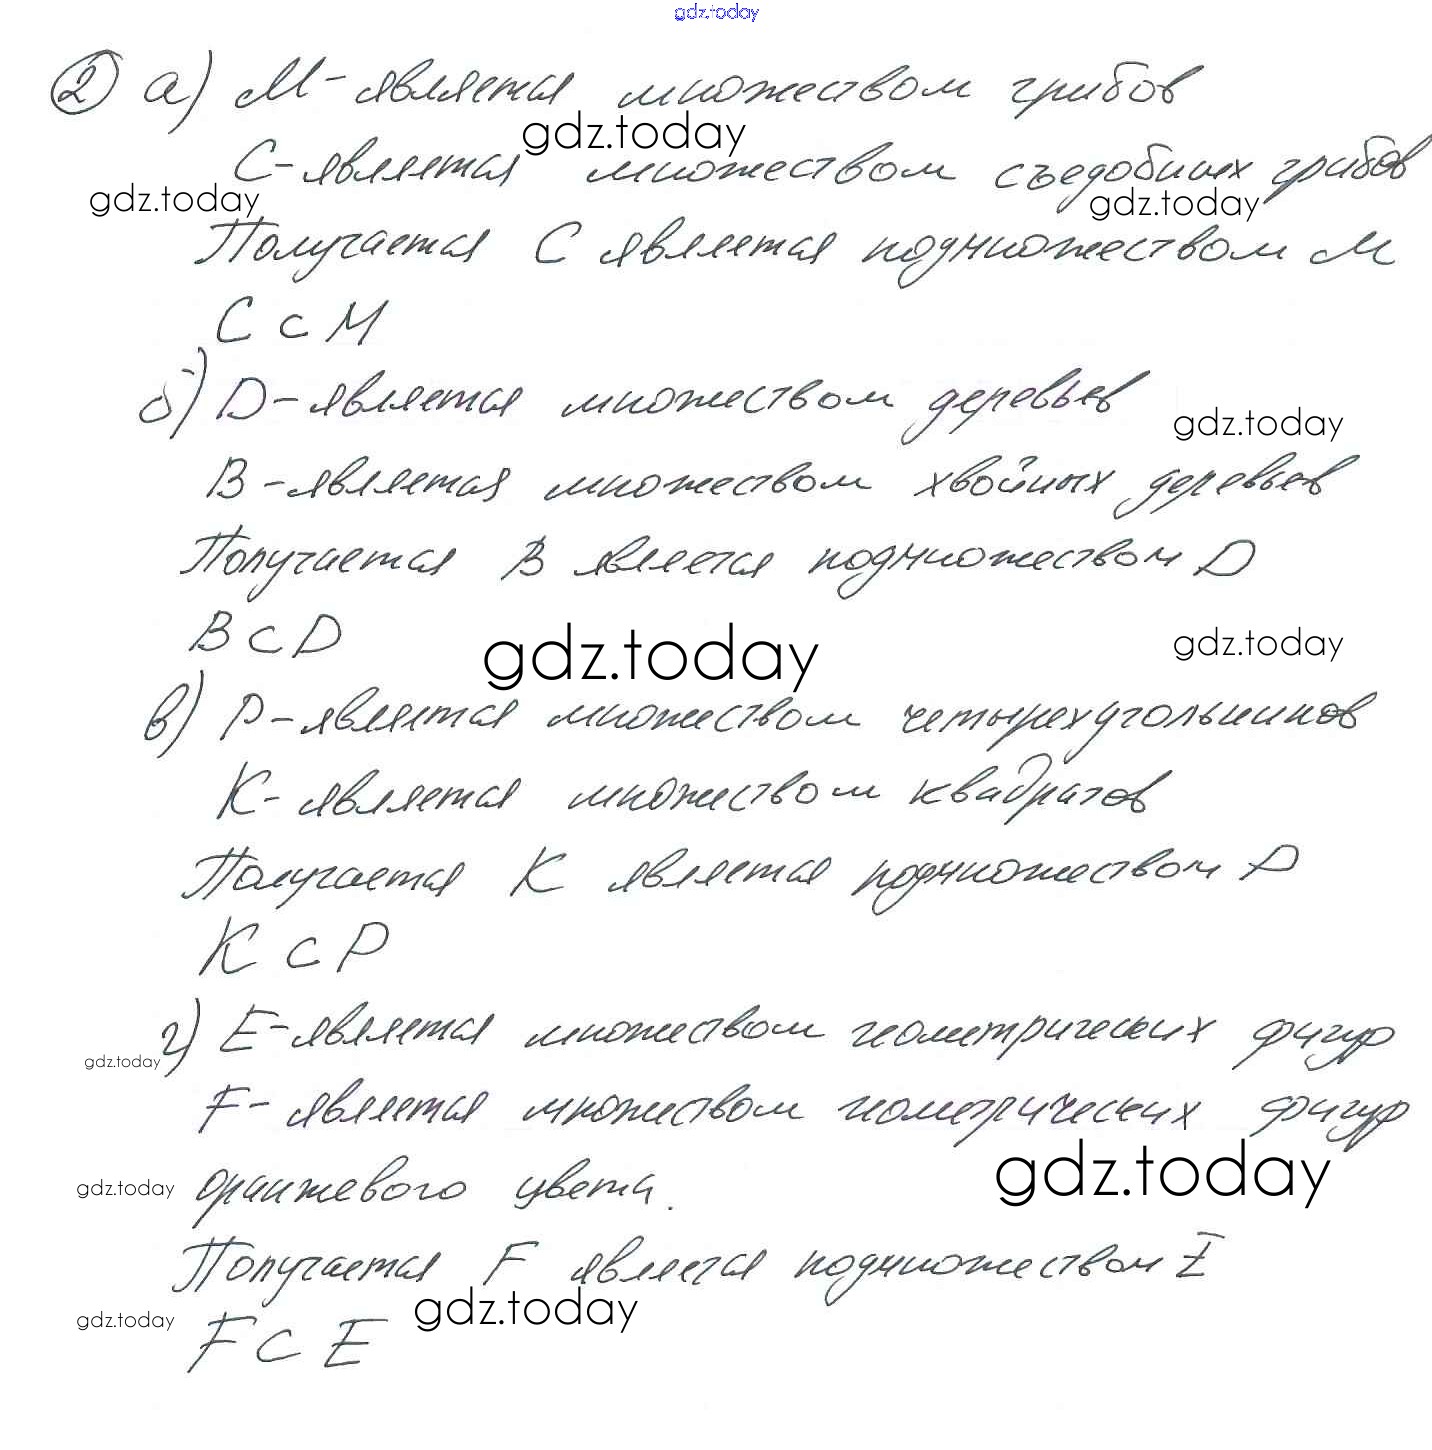 gdz.today
2 а) М - является множеством грибов
gdz.today
С - является множеством съедобных грибов
gdz.today gdz.today
Получается С является подмножеством М
С ⊂ М
б) D - является множеством деревьев
gdz.today
В - является множеством хвойных деревьев
Получается В является подмножеством D
В ⊂ D
gdz.today gdz.today
в) Р - является множеством четырехугольников
К - является множеством квадратов
Получается К является подмножеством Р
К ⊂ Р
г) Е - является множеством геометрических фигур
gdz.today
F - является множеством геометрических фигур
gdz.today
gdz.today
оранжевого цвета.
Получается F является подмножеством Е
gdz.today
gdz.today
F ⊂ E